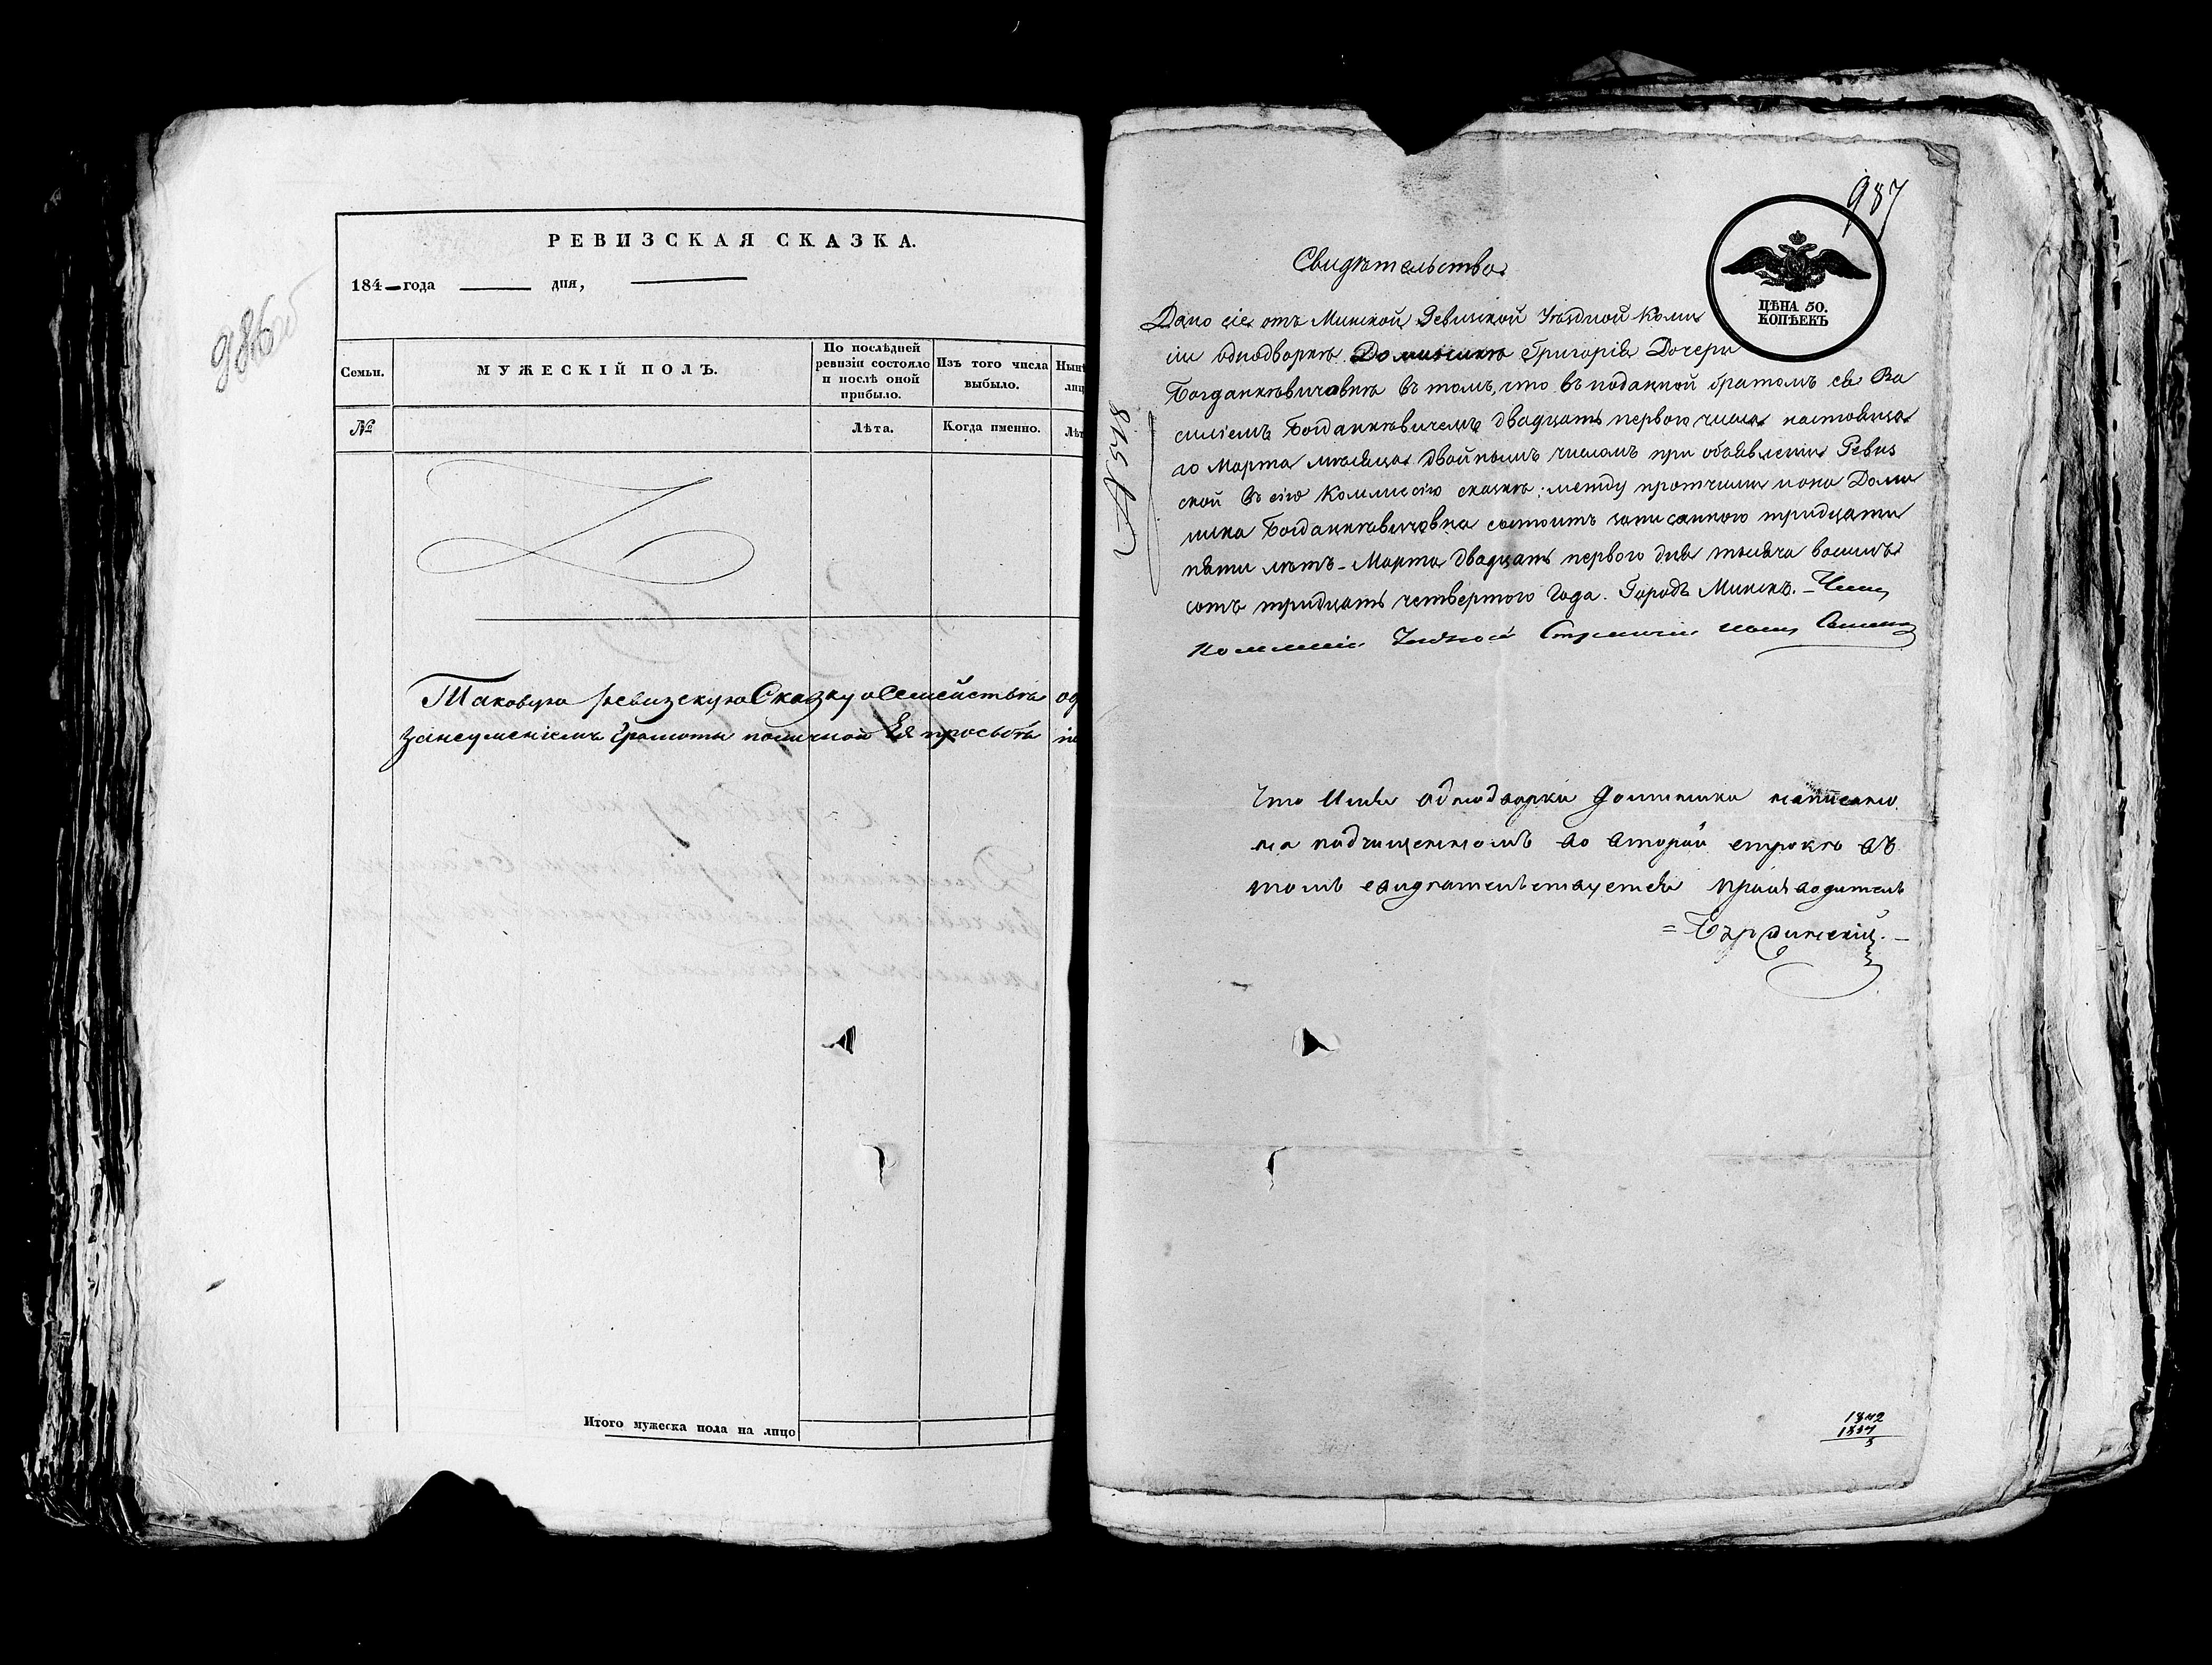 986 об
РЕВИЗСКАЯ СКАЗКА.
184 года дня,
Семьи.
МУЖЕСКІЙ ПОЛЪ.
По послѣдней ревизіи состояло и послѣ оной прибыло.
Изъ того числа выбыло.
№
Лѣта.
Когда именно.
Таковую ревизскую Сказку о Семействѣ
за неуменіемъ Грамоты поличной Ея просьбѣ
Итого мужеска пола на лицо
987
ЦѢНА 50.
КОПѢЕКЪ
Свидѣтельство
Дано сіе отъ Минской Ревизской Уѣздной Коми
іи однодворкѣ Доминикѣ Григорія Дочери
Богданкѣвичовнѣ въ томъ, что въ поданной братомъ ея Ва
силіемъ Богданкѣвичемъ двадцать первого числа настояща
го Марта мѣсяца двойнымъ числомъ при объявленіи Ревиз
ской въ сію Коммиссію сказкѣ; между протчими и она Доми
ника Богданкѣвичовна состоитъ записанною тридцати
пяти лѣтъ - Марта двадцать первого дня тысяча восимъ
сотъ тридцать четвертого Года. Городъ Минскъ. - Членъ
Коммисіи Уѣздной Стряпчій
Что Имя однодворки Доминики написано
на подчищенномъ во второй строкѣ въ
томъ свидѣтельствуется Производитель
1842
1837
5